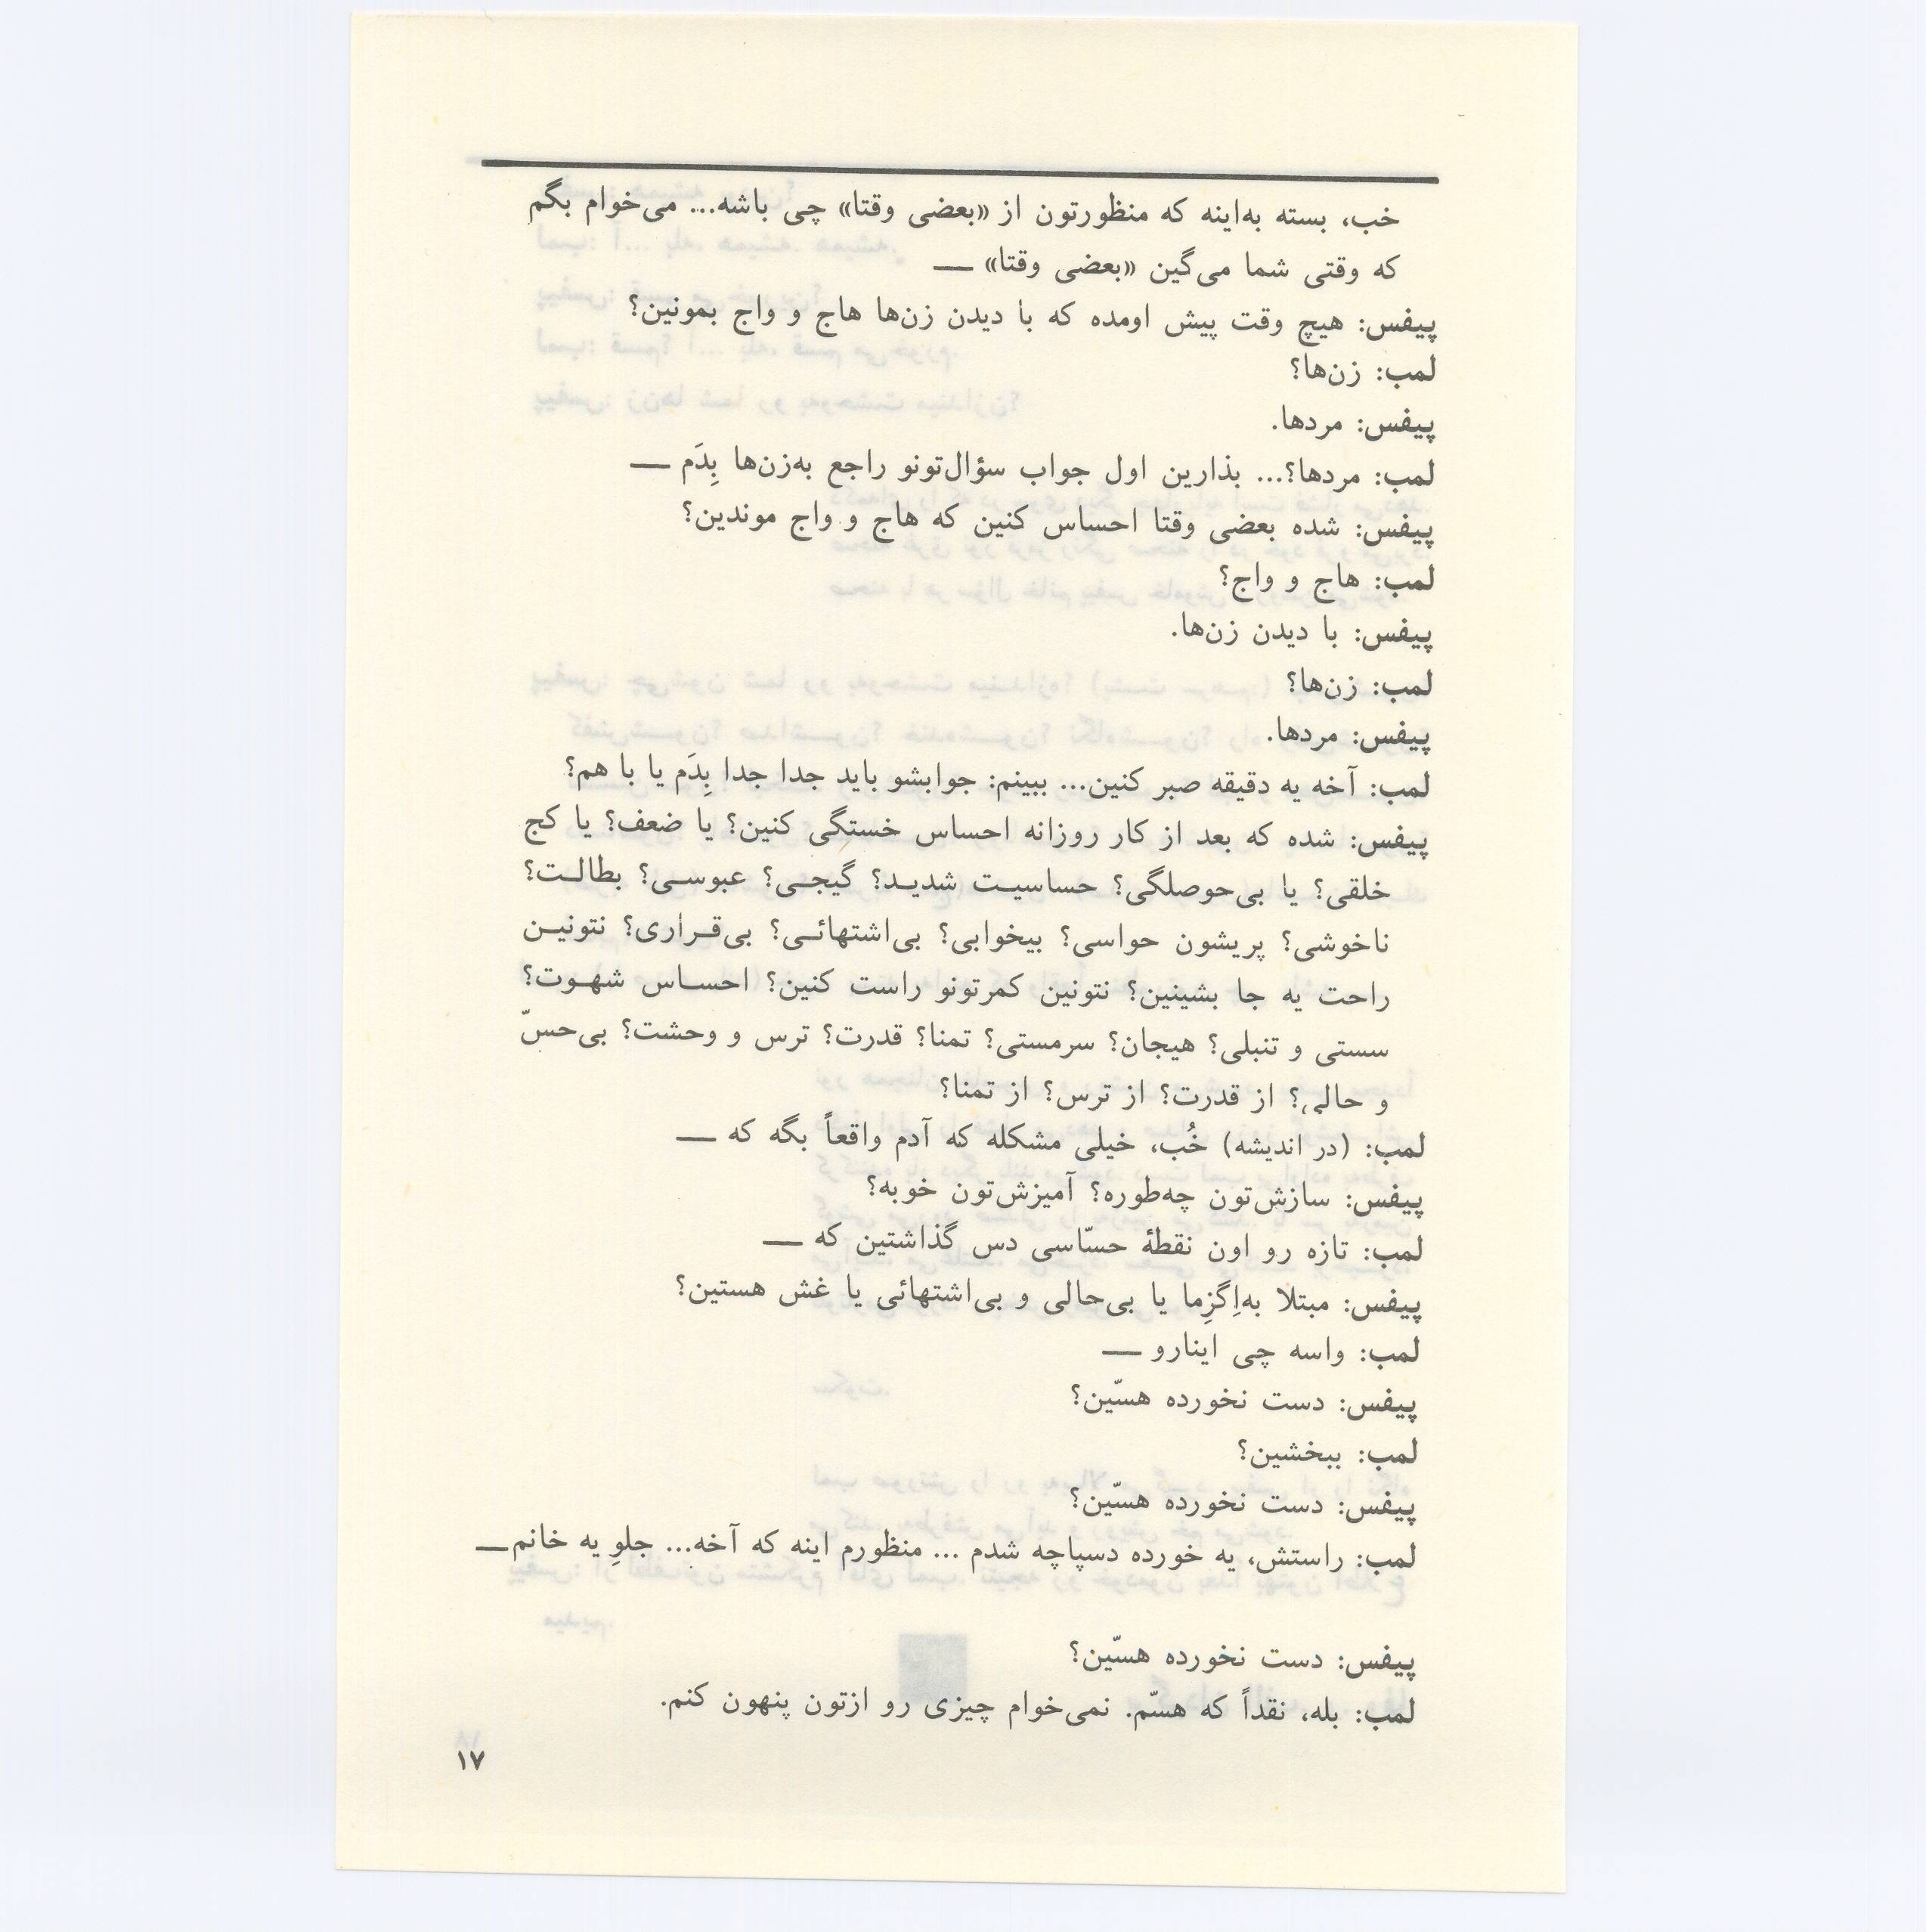 خب، بسته به‌اینه که منظورتون از «بعضی وقتا» چی باشه... می‌خوام بگم
که وقتی شما می‌گین «بعضی وقتا» —
پیفس: هیچ وقت پیش اومده که با دیدن زن‌ها هاج و واج بمونین؟
لمب: زن‌ها؟
پیفس: مردها.
لمب: مردها؟... بذارین اول جواب سؤال‌تونو راجع به‌زن‌ها بِدَم —
پیفس: شده بعضی وقتا احساس کنین که هاج و واج موندین؟
لمب: هاج و واج؟
پیفس: با دیدن زن‌ها.
لمب: زن‌ها؟
پیفس: مردها.
لمب: آخه یه دقیقه صبر کنین... ببینم: جوابشو باید جدا جدا بِدَم یا با هم؟
پیفس: شده که بعد از کار روزانه احساس خستگی کنین؟ یا ضعف؟ یا کج
خلقی؟ یا بی‌حوصلگی؟ حساسیت شدید؟ گیجی؟ عبوسی؟ بطالت؟
ناخوشی؟ پریشون حواسی؟ بیخوابی؟ بی‌اشتهائی؟ بی‌قراری؟ نتونین
راحت یه جا بشینین؟ نتونین کمرتونو راست کنین؟ احساس شهوت؟
سستی و تنبلی؟ هیجان؟ سرمستی؟ تمنا؟ قدرت؟ ترس و وحشت؟ بی‌حسّ
و حالی؟ از قدرت؟ از ترس؟ از تمنا؟
لمب: (در اندیشه) خُب، خیلی مشکله که آدم واقعاً بگه که —
پیفس: سازش‌تون چه‌طوره؟ آمیزش‌تون خوبه؟
لمب: تازه رو اون نقطهٔ حسّاسی دس گذاشتین که —
پیفس: مبتلا به‌اِگزِما یا بی‌حالی و بی‌اشتهائی یا غش هستین؟
لمب: واسه چی اینارو —
پیفس: دست نخورده هسّین؟
لمب: ببخشین؟
پیفس: دست نخورده هسّین؟
لمب: راستش، یه خورده دسپاچه شدم ... منظورم اینه که آخه... جلوِ یه خانم—
پیفس: دست نخورده هسّین؟
لمب: بله، نقداً که هسّم. نمی‌خوام چیزی رو ازتون پنهون کنم.
۱۷